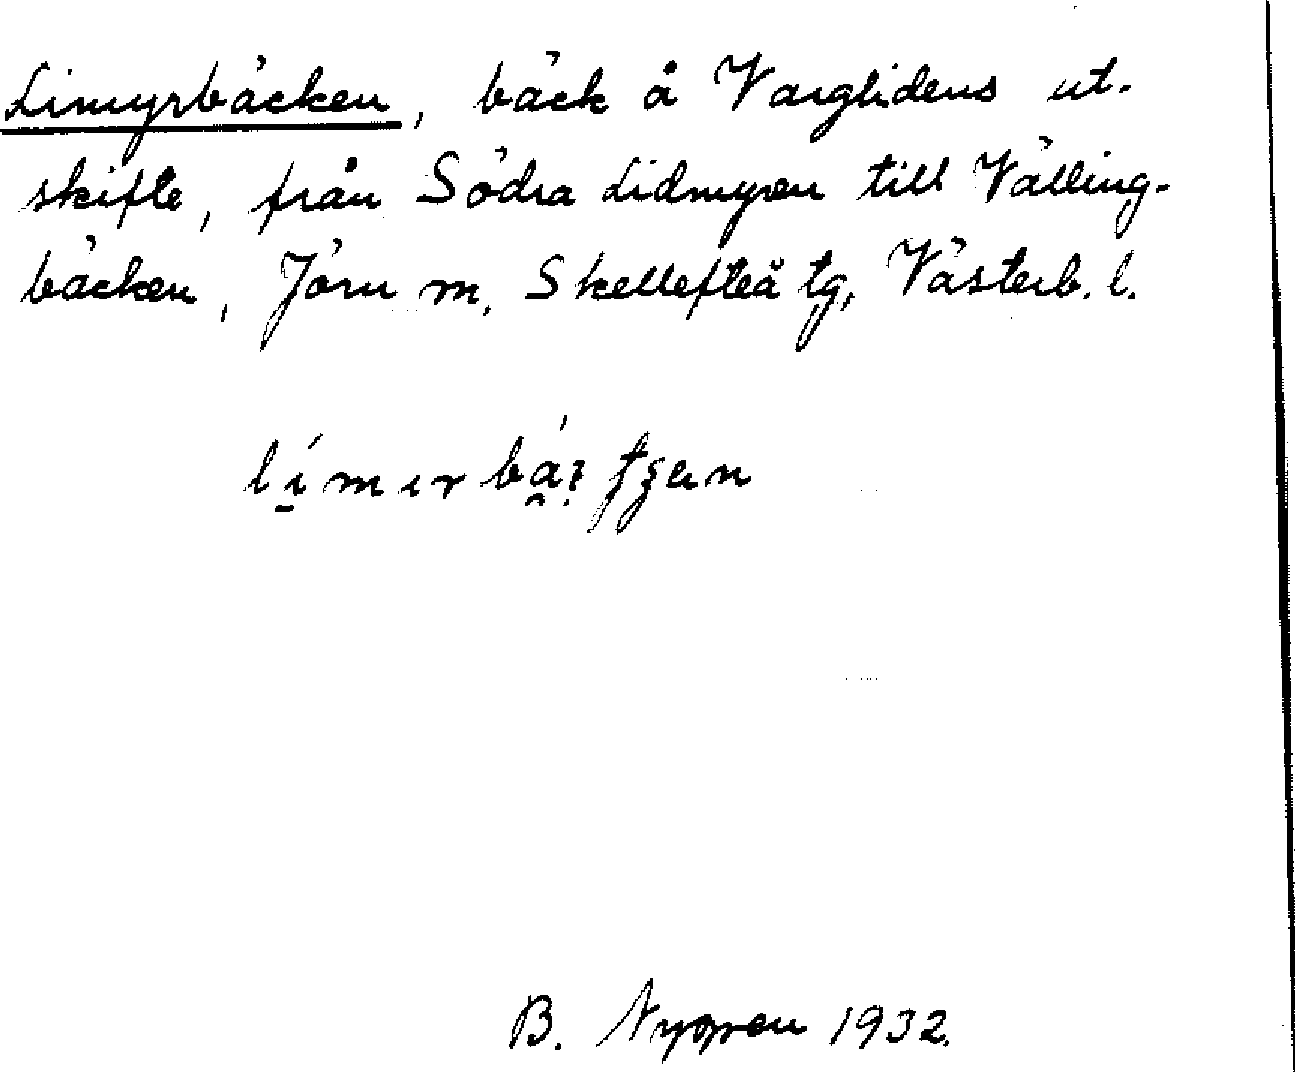 Limyrbäcken, bäck å Varglidens ut-
skifte, från Södra Lidmyren till Välling-
bäcken, Jörn m, Skellefteå tg, Västerb. l.
B. 1932.